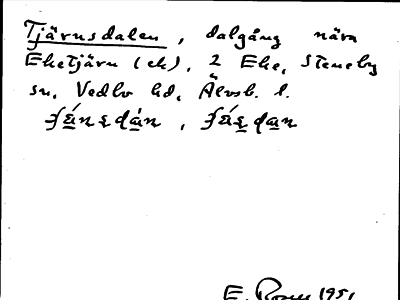 Tjärnsdalen, dalgång nära
Eketjärn (ek), 2 Eke, Steneby
sn, Vedbo hd, Älvsb. l.
E. Rosell 1951